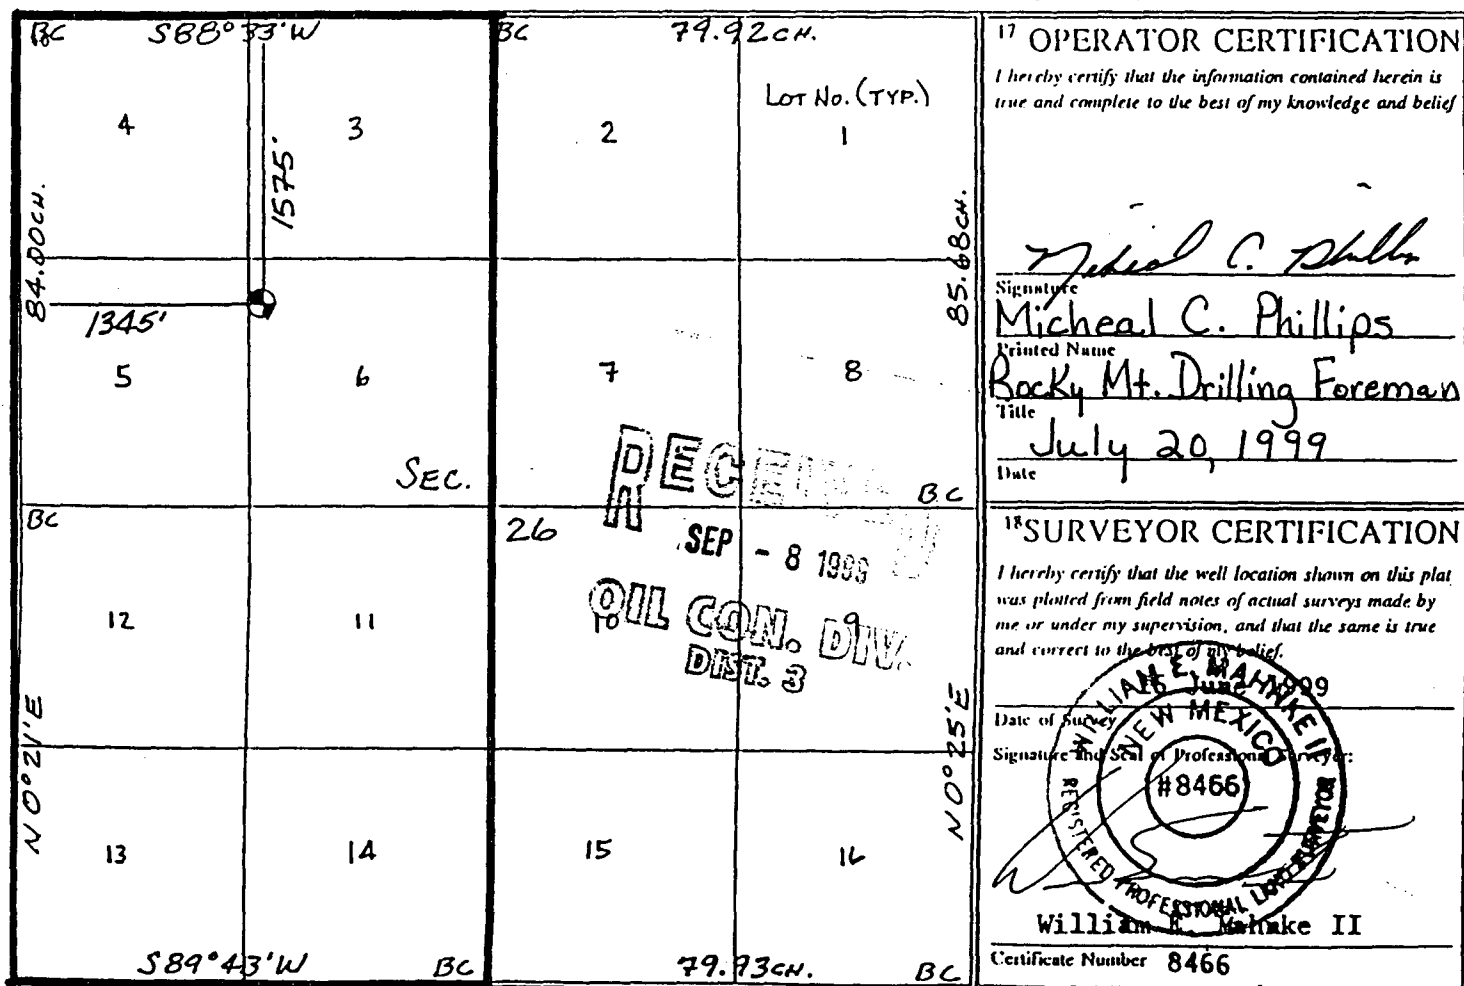 BC S88°33'W BC 79.92CH.
LOT NO. (TYP.)
4 3 2 1
1575'
84.00CH.
85.68CH.
1345'
5 6 7 8
SEC.
BC
BC
26
RECEIVED
SEP - 8 1999
OIL CON. DIV.
DIST. 3
12 11 10 9
N0°21'E
N0°25'E
13 14 15 16
S89°43'W BC 79.93CH. BC
17 OPERATOR CERTIFICATION
I hereby certify that the information contained herein is
true and complete to the best of my knowledge and belief
Signature
Micheal C. Phillips
Printed Name
Rocky Mt. Drilling Foreman
Title
July 20, 1999
Date
18 SURVEYOR CERTIFICATION
I hereby certify that the well location shown on this plat
was plotted from field notes of actual surveys made by
me or under my supervision, and that the same is true
and correct to the best of my belief.
June 1999
Date of Survey
Signature and Seal of Professional Surveyor:
WILLIAM E. MAHNKE II
NEW MEXICO
#8466
REGISTERED PROFESSIONAL LAND SURVEYOR
William E. Mahnke II
Certificate Number 8466